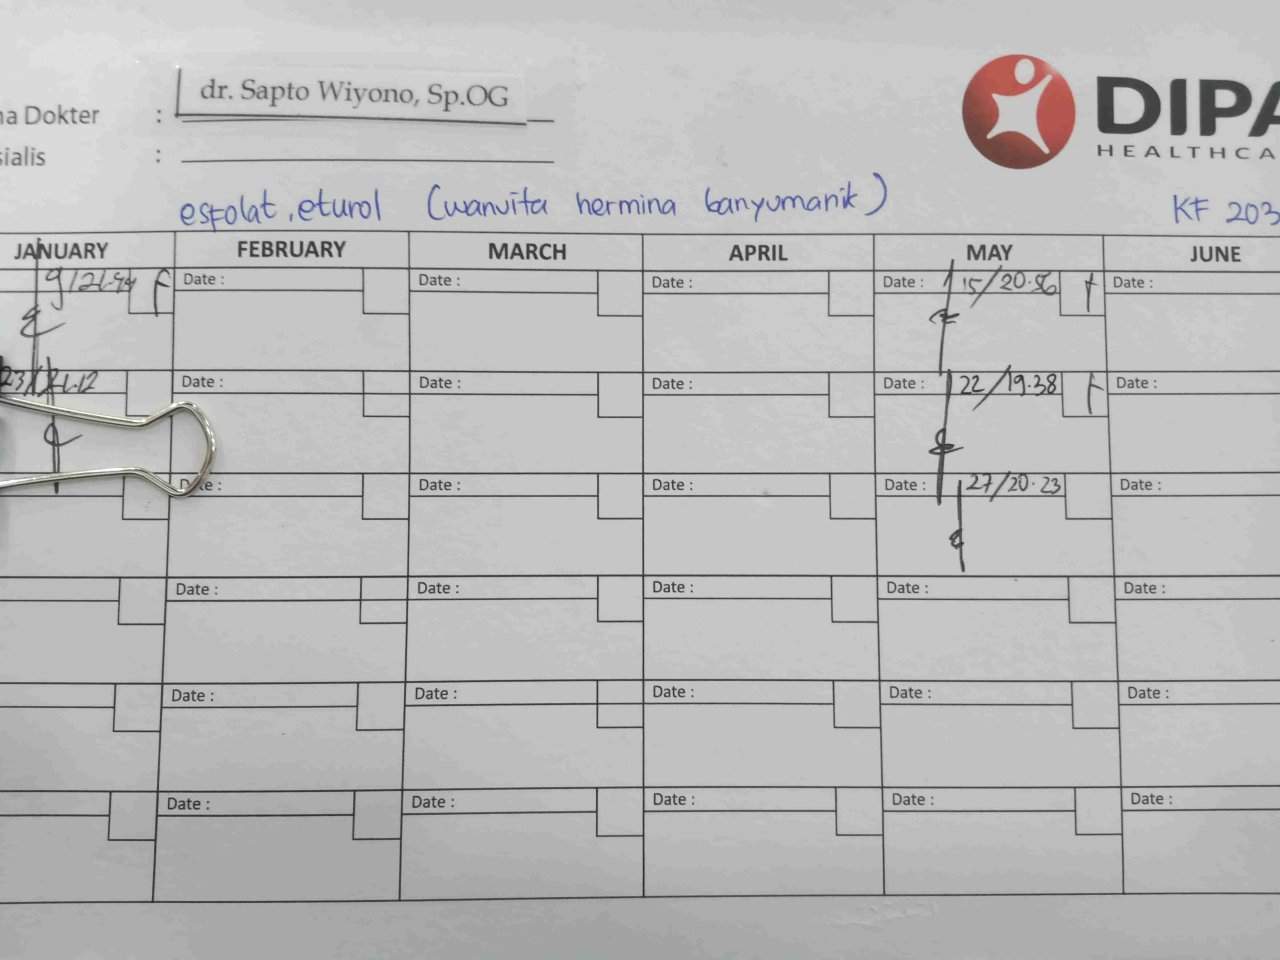 na Dokter : dr. Sapto Wiyono, Sp.OG
sialis :
DIPA
HEALTHCA
esfolat, eturol (wanvita hermina banyumanik) KF 203
JANUARY FEBRUARY MARCH APRIL MAY JUNE
9/21.44 Date : Date : Date : Date : 15/20.56 Date :
23/21.12 Date : Date : Date : Date : 22/19.38 Date :
Date : Date : Date : Date : 27/20.23 Date :
Date : Date : Date : Date : Date :
Date : Date : Date : Date : Date :
Date : Date : Date : Date : Date :